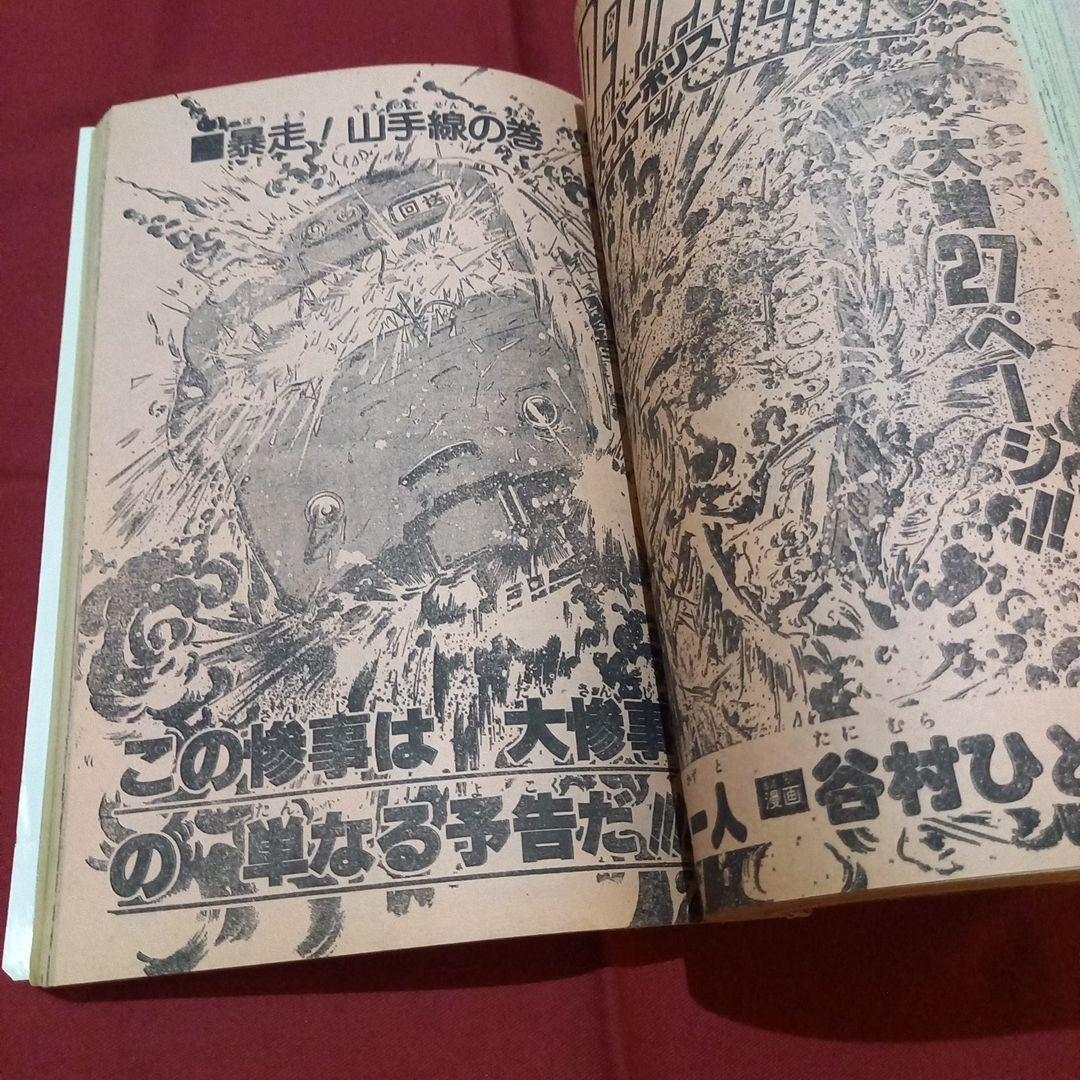 ■暴走！山手線の巻
回送
この惨事は 大惨事
の 単なる予告だ!!!
ーパーポリス
大増27ページ!!
一人 漫画 谷村ひと
たに むら